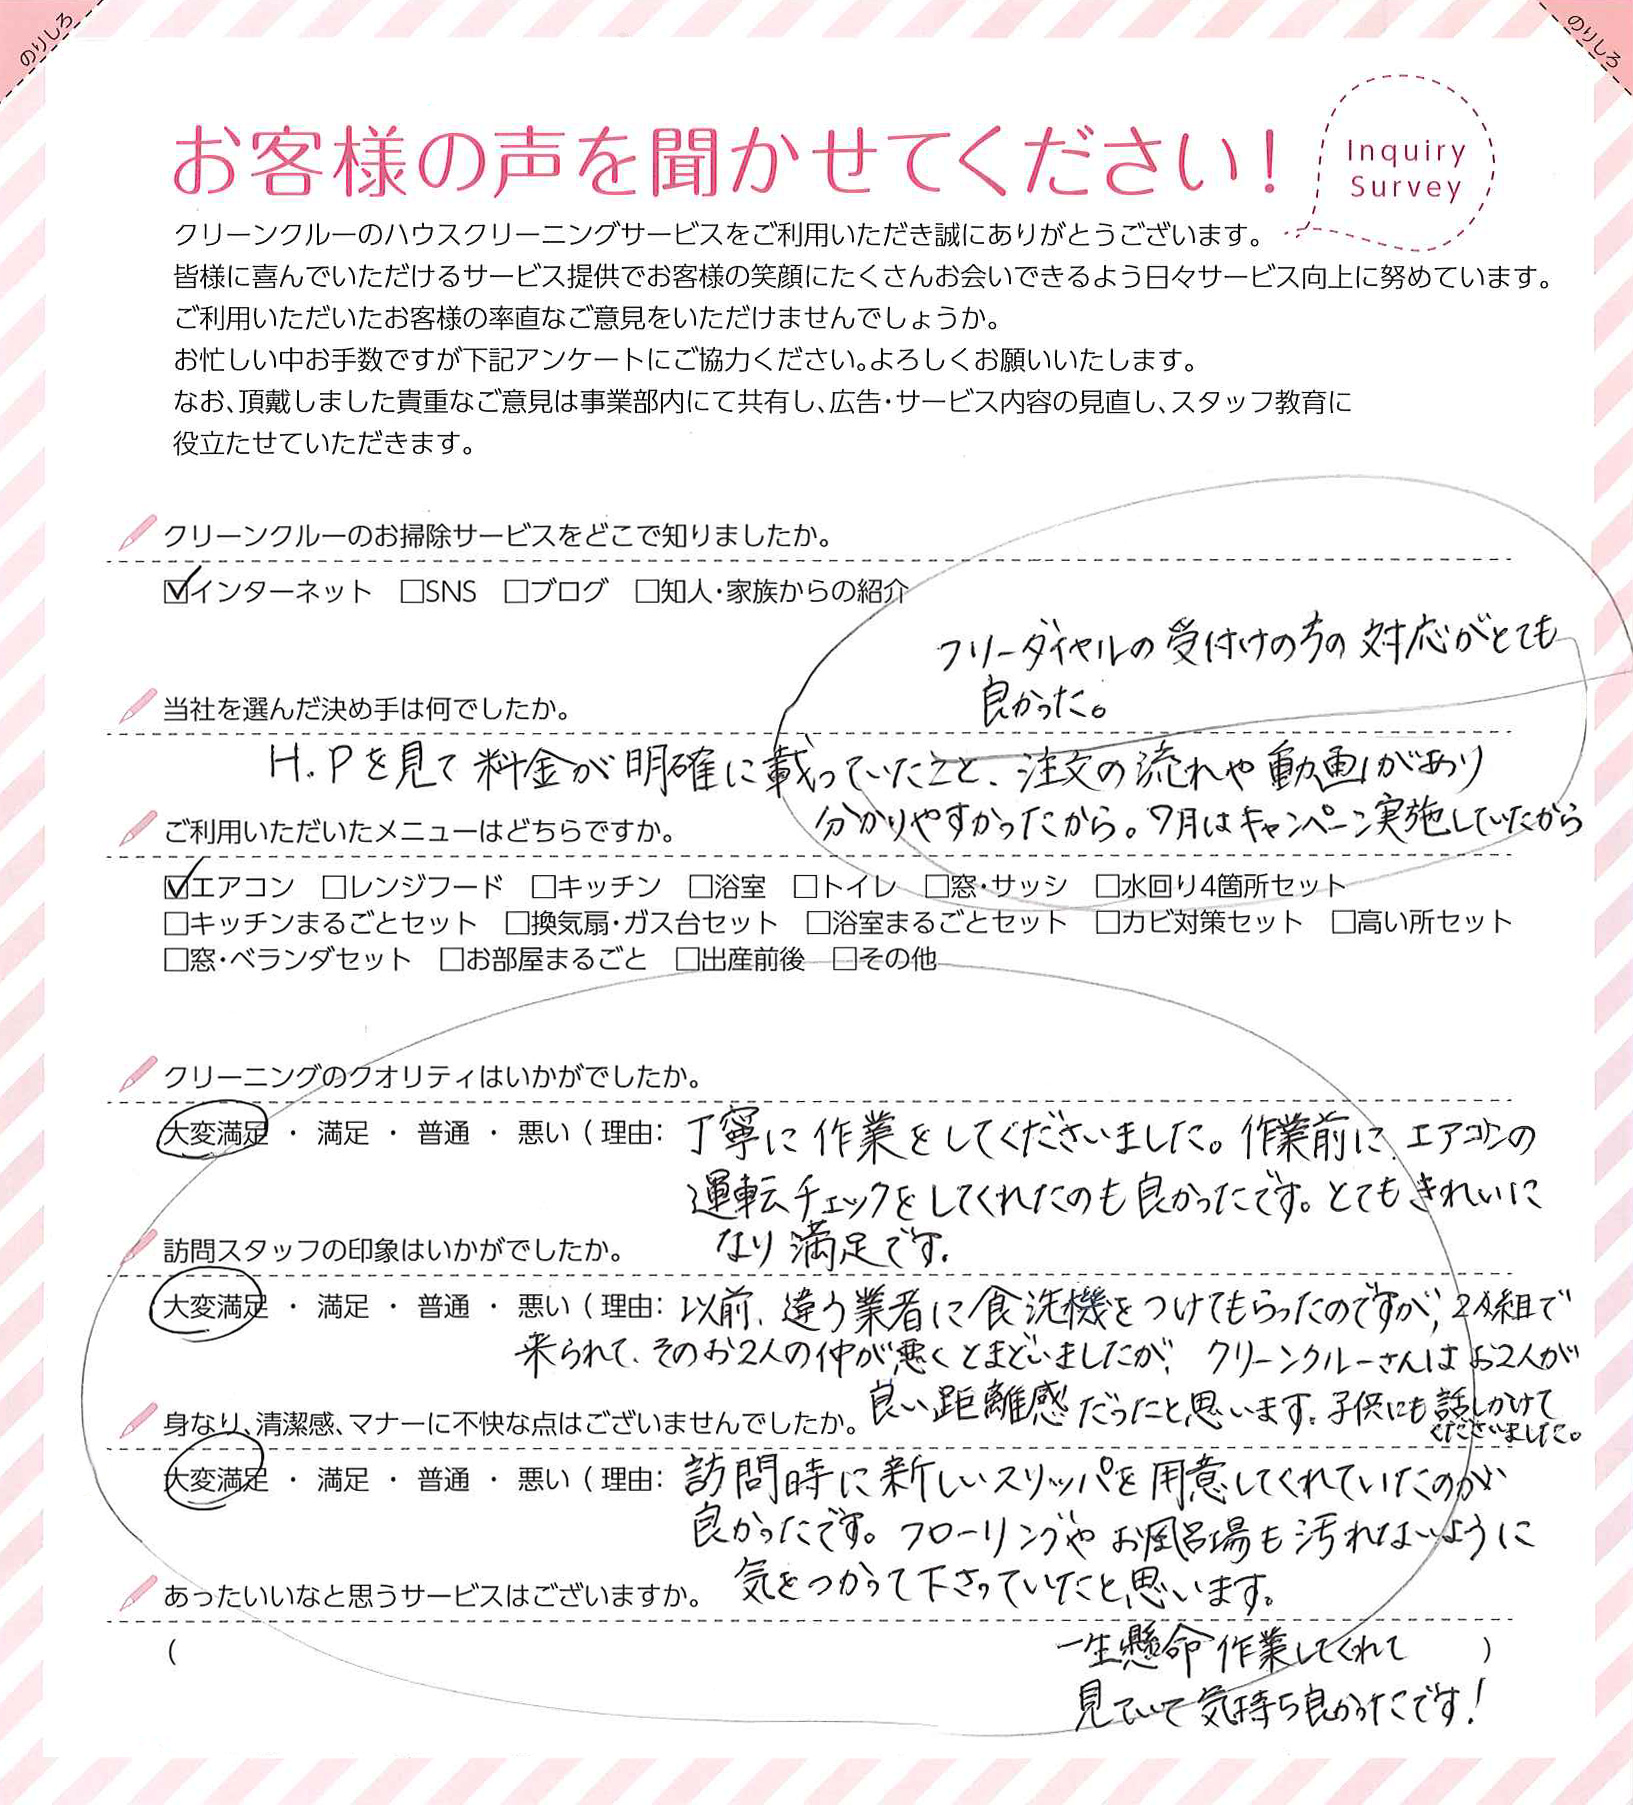 のりしろ
のりしろ
お客様の声を聞かせてください!
Inquiry
Survey
クリーンクルーのハウスクリーニングサービスをご利用いただき誠にありがとうございます。
皆様に喜んでいただけるサービス提供でお客様の笑顔にたくさんお会いできるよう日々サービス向上に努めています。
ご利用いただいたお客様の率直なご意見をいただけませんでしょうか。
お忙しい中お手数ですが下記アンケートにご協力ください。よろしくお願いいたします。
なお、頂戴しました貴重なご意見は事業部内にて共有し、広告・サービス内容の見直し、スタッフ教育に
役立たせていただきます。
クリーンクルーのお掃除サービスをどこで知りましたか。
☑インターネット □SNS □ブログ □知人・家族からの紹介
フリーダイヤルの受付けの方の対応がとても
良かった。
当社を選んだ決め手は何でしたか。
H.Pを見て料金が明確に載っていたこと、注文の流れや動画があり
分かりやすかったから。7月はキャンペーン実施していたから
ご利用いただいたメニューはどちらですか。
☑エアコン □レンジフード □キッチン □浴室 □トイレ □窓・サッシ □水回り4箇所セット
□キッチンまるごとセット □換気扇・ガス台セット □浴室まるごとセット □カビ対策セット □高い所セット
□窓・ベランダセット □お部屋まるごと □出産前後 □その他
クリーニングのクオリティはいかがでしたか。
大変満足 ・ 満足 ・ 普通 ・ 悪い ( 理由: 丁寧に作業をしてくださいました。作業前に、エアコンの
運転チェックをしてくれたのも良かったです。とてもきれいに
なり満足です。
訪問スタッフの印象はいかがでしたか。
大変満足 ・ 満足 ・ 普通 ・ 悪い ( 理由: 以前、違う業者に食洗機をつけてもらったのですが、2人組で
来られて、そのお2人の仲が悪くとまどいましたが、クリーンクルーさんはお2人が
良い距離感だったと思います。子供にも話しかけて
くださいました。
身なり、清潔感、マナーに不快な点はございませんでしたか。
大変満足 ・ 満足 ・ 普通 ・ 悪い ( 理由: 訪問時に新しいスリッパを用意してくれていたのが
良かったです。フローリングやお風呂場も汚れないように
気をつかって下さっていたと思います。
あったいいなと思うサービスはございますか。
( 一生懸命作業してくれて )
見ていて気持ち良かったです!